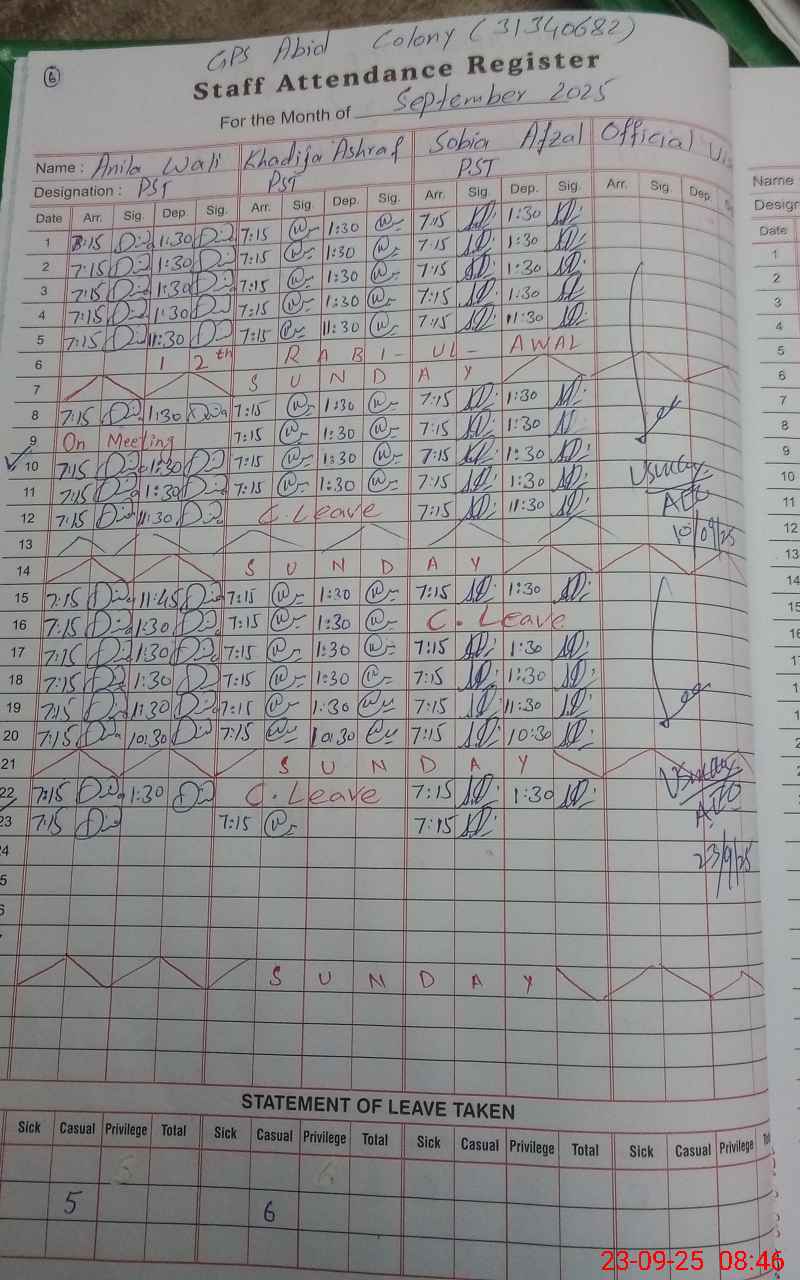 6
GPS Abid Colony (31340682)
Staff Attendance Register
For the Month of September 2025
Name : Anila Wali Khadija Ashraf Sobia Afzal Official
Designation : PST PST PST
Date Arr. Sig. Dep. Sig. Arr. Sig. Dep. Sig. Arr. Sig. Dep. Sig. Arr. Sig. Dep.
1 7:15 1:30 7:15 1:30 7:15 1:30
2 7:15 1:30 7:15 1:30 7:15 1:30
3 7:15 1:30 7:15 1:30 7:15 1:30
4 7:15 1:30 7:15 1:30 7:15 1:30
5 7:15 11:30 7:15 11:30 7:15 11:30
6 12th RABI-UL-AWAL
7 SUNDAY
8 7:15 1:30 7:15 1:30 7:15 1:30
9 On Meeting 7:15 1:30 7:15 1:30
10 7:15 1:30 7:15 1:30 7:15 1:30
11 7:15 1:30 7:15 1:30 7:15 1:30
12 7:15 11:30 C.Leave 7:15 11:30
AEO
10/09/25
13
14 SUNDAY
15 7:15 11:45 7:15 1:30 7:15 1:30
16 7:15 1:30 7:15 1:30 C.Leave
17 7:15 1:30 7:15 1:30 7:15 1:30
18 7:15 1:30 7:15 1:30 7:15 1:30
19 7:15 11:30 7:15 1:30 7:15 11:30
20 7:15 10:30 7:15 10:30 7:15 10:30
21 SUNDAY
22 7:15 1:30 C.Leave 7:15 1:30
23 7:15 7:15 7:15
AEO
23/9/25
SUNDAY
STATEMENT OF LEAVE TAKEN
Sick Casual Privilege Total Sick Casual Privilege Total Sick Casual Privilege Total Sick Casual Privilege
5 6
Name :
Date
1
2
3
4
5
6
7
8
9
10
11
12
13
14
23-09-25 08:46